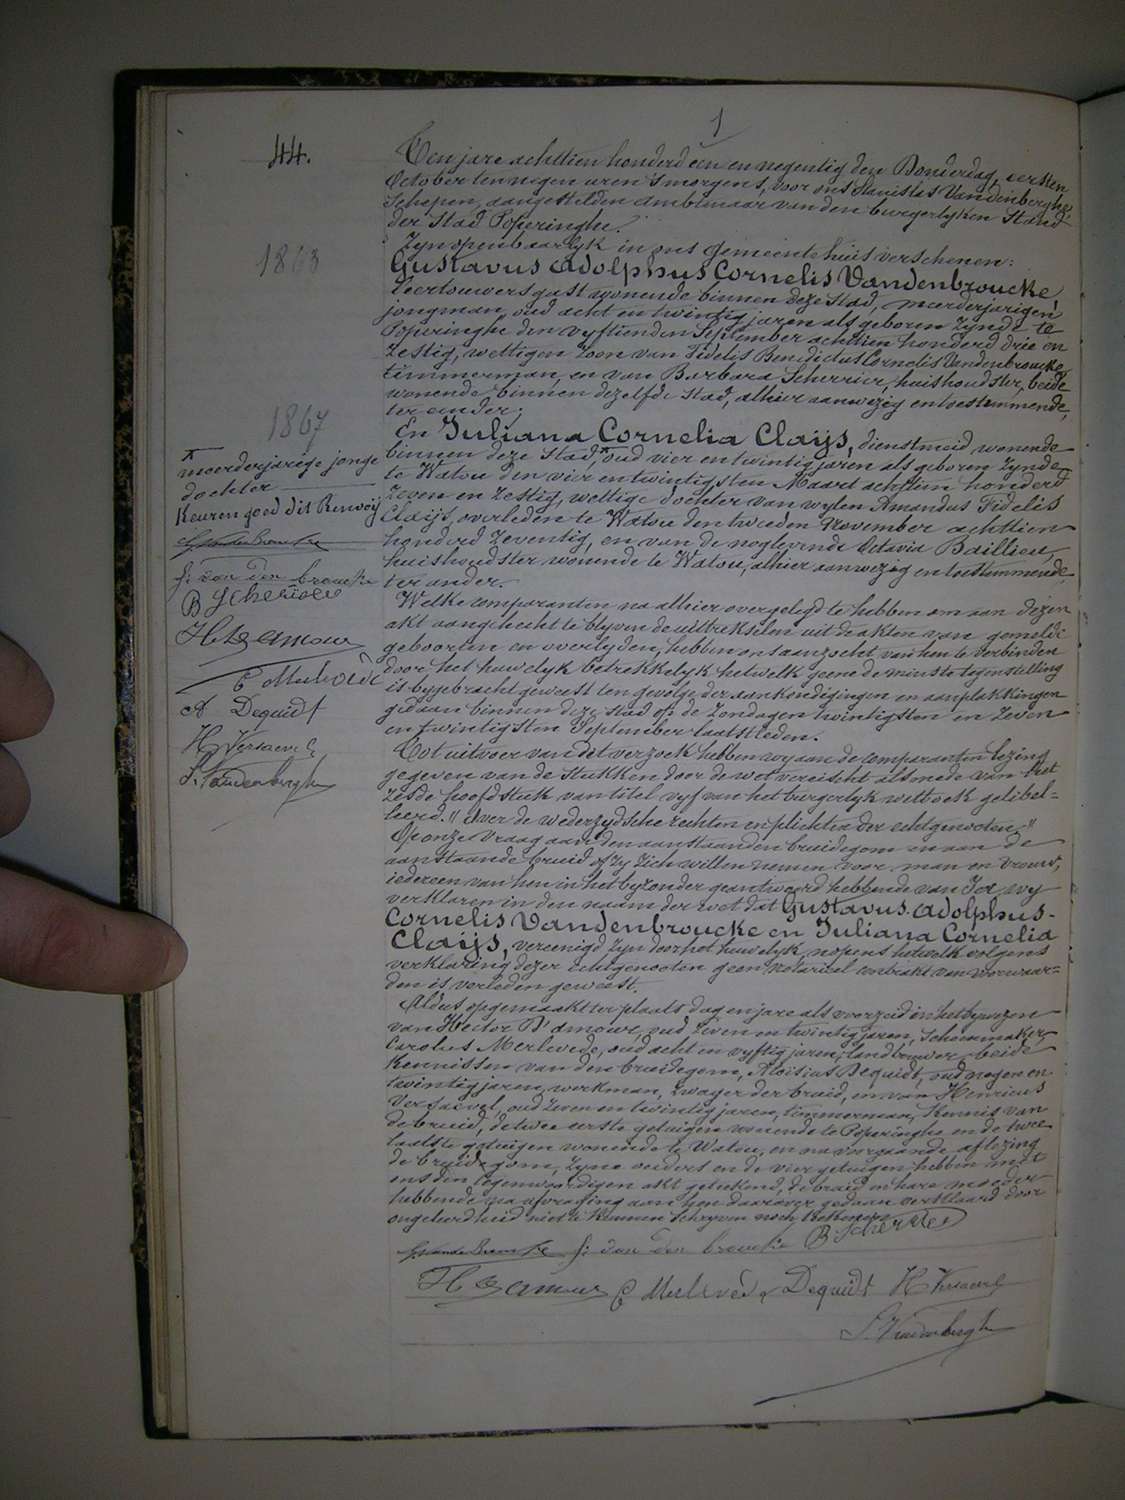 1
44.
Ten jare achttien honderd een en negentig den Donderdag, eersten
October ten negen uren 's morgens, voor ons Stanislas Vandenberghe,
Schepen, aangestelden ambtenaar van den burgerlyken Stand
der Stad Poperinghe.
Zyn openbaarlyk in ons gemeentehuis verschenen:
1863
Gustavus Adolphus Cornelis Vandenbroucke,
leertouwersgast wonende binnen deze Stad, meerderjarigen
jongman, oud acht en twintig jaren als geboren zynde te
Poperinghe den vyftienden September achttien honderd drie en
zestig, wettigen zoon van Fidelis Benedictus Cornelis Vandenbroucke,
timmerman, en van Barbara Scherrier, huishoudster, beide
wonende binnen dezelfde Stad, alhier aanwezig en toestemmende,
ter eender;
1867
En Juliana Cornelia Claijs, dienstmeid wonende
binnen deze Stad, oud vier en twintig jaren als geboren zynde
te Watou den vier en twintigsten Maart achttien honderd
zeven en zestig, wettige dochter van wylen Amandus Fidelis
Claijs, overleden te Watou den tweeden November achttien
honderd zeventig, en van de noglevende Octavia Baillieu,
huishoudster wonende te Watou, alhier aanwezig en toestemmende,
ter ander.
meerderjarige jonge
dochter
Keuren goed dit Renvoij
G. Vandenbroucke
f: van den broucke
B Scherrier
H. D'amour
C Merlevede
A Dequidt
H Versaevel
S. Vandenberghe
Welke comparanten na alhier overgelegd te hebben om aan dezen
akt aangehecht te blyven de uittrekselen uit de akten van gemelde
geboorten en overlyden, hebben ons aanzocht van hen te verbinden
door het huwelyk betrekkelyk hetwelk geene de minste tegenstelling
is bygebracht geweest ten gevolge der aankondigingen en aanplakkingen
gedaan binnen deze stad op de Zondagen twintigsten en zeven
en twintigsten September laatstleden.
Tot uitvoer van dit verzoek hebben wy aan de comparanten lezing
gegeven van de stukken door de wet vereischt alsmede van het
zesde hoofdstuk van titel vyf van het burgerlyk wetboek gelibel=
leerd " Over de wederzydsche rechten en plichten der echtgenooten."
Op onze vraag aan den aanstaanden bruidegom en aan de
aanstaande bruid of zy zich willen nemen voor man en vrouw,
iedereen van hen in het byzonder geantwoord hebbende van Ja, wy
verklaren in den naam der wet dat Gustavus Adolphus-
Cornelis Vandenbroucke en Juliana Cornelia
Claijs, vereenigd zyn door het huwelyk, nopens hetwelk volgens
verklaring dezer echtgenooten geen notarieel contrakt van voorwaar-
den is verleden geweest.
Aldus opgemaakt ter plaats dag en jare als voorzeid in het bywezen
van Hector D'amour, oud zeven en twintig jaren, schoenmaker,
Carolus Merlevede, oud acht en vyftig jaren, landbouwer beide
kennissen van den bruidegom, Aloisius Dequidt, oud negen en
twintig jaren, werkman, zwager der bruid, en van Henricus
Versaevel, oud zeven en twintig jaren, timmerman, kennis van
de bruid, de twee eerste getuigen wonende te Poperinghe en de twee
laatste getuigen wonende te Watou, en na voorgaande aflezing
de bruidegom, zyne ouders en de vier getuigen hebben met
ons den tegenwoordigen akt geteekend, de bruid en hare moeder
hebbende na afvraging aan hen daarover gedaan verklaard door
ongeleerdheid niet te kunnen schryven noch teekenen
G. Vandenbroucke f: van den broucke B. Scherrier
H D'amour C Merlevede A Dequidt H Versaevel
S. Vandenberghe